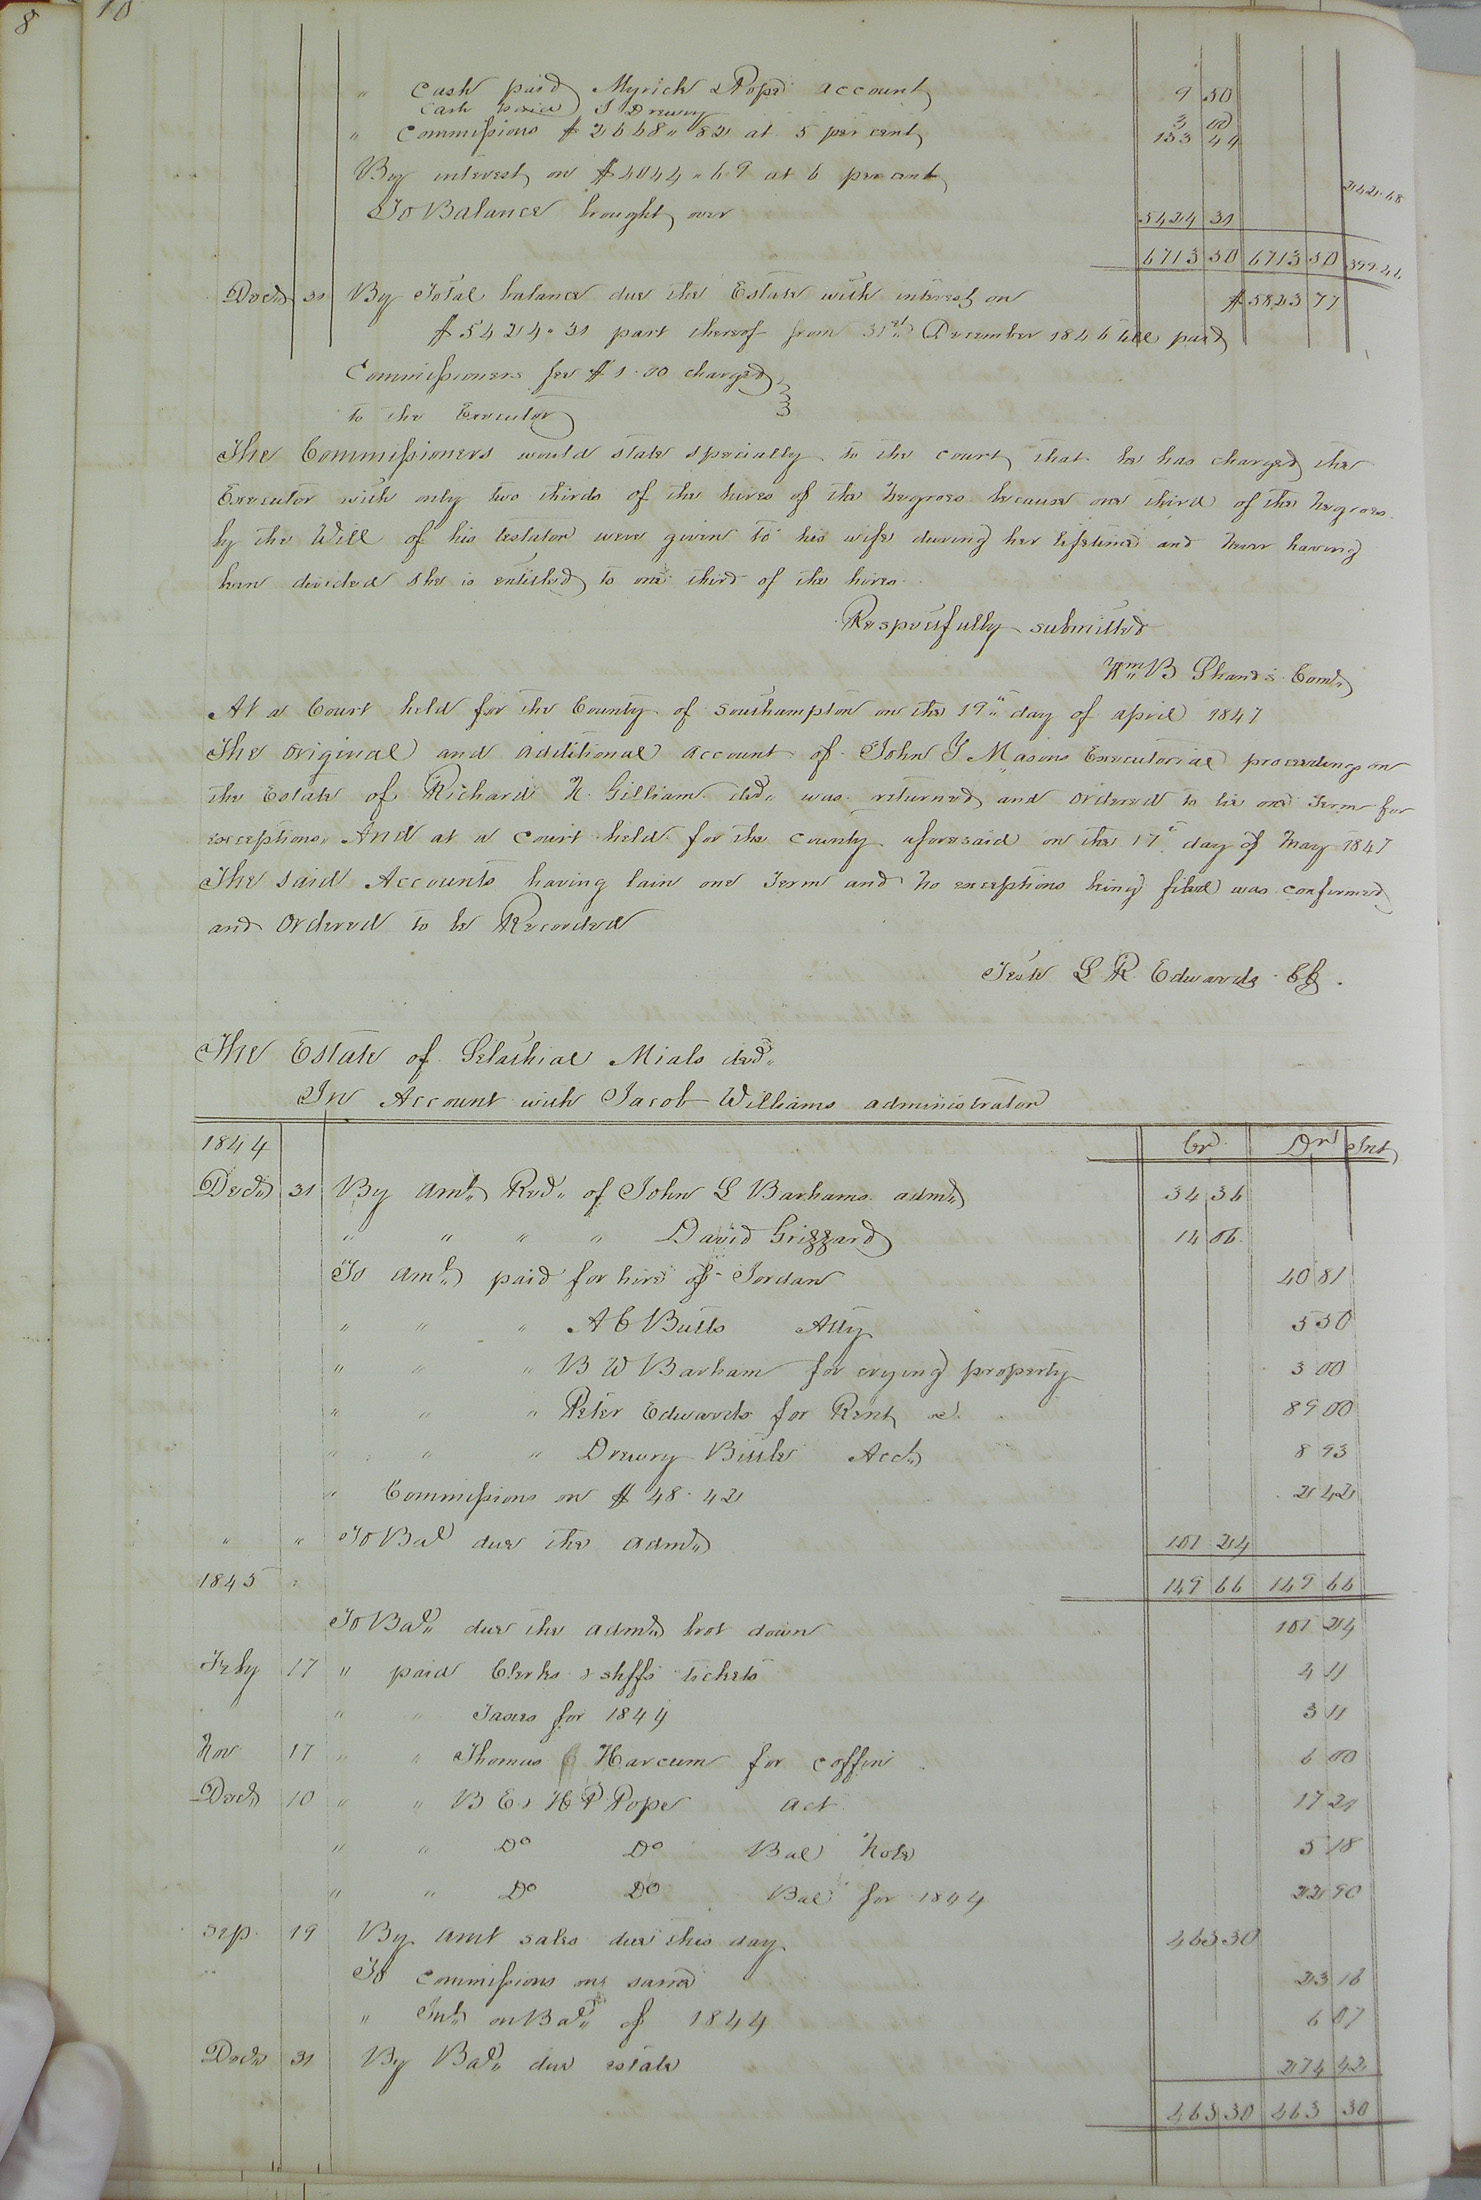 8
10
" Cash paid Myrick & Pope account 9 50
Cash paid J Drewry 3 00
" Commissions $2668"82 at 5 per cent 133 44
By interest on $4044"69 at 6 per cent 242.68
To Balance brought over 5424 31
6713 50 6713 50 399.46
Decr 31 By Total balance due the Estate with interest on $5823 77
$5424.31 part thereof from 31st December 1846 till paid
Commissioners fee $1.00 charged
to the Executor
The Commissioners would state specially to the court, that he has charged the
Executor with only two thirds of the hires of the Negroes because one third of the Negroes
by the Will of his testator were given to his wife during her lifetime and never having
been divided she is entitled to one third of the hires.
Respectfully submitted
Wm B Shands Comr
At a Court held for the County of Southampton on the 19th day of april 1847
The original and additional account of John Y Masons Executorial proceedings on
the Estate of Richard H. Gilliam decd was returned and ordered to lie one Term for
exceptions. And at a court held for the county aforesaid on the 17t day of May 1847
The said Accounts having lain one Term and no exceptions being filed was confirmed
and Ordered to be Recorded
Teste L R Edwards Clk.
The Estate of Selathial Mials decd
In Account with Jacob Williams administrator
1844 Cr Dr Int
Decr 31 By amt Recd of John L Barhams admr 34 36
" " " " David Grizzard 14 06
To amt paid for hire of Jordan 40 81
" " " A C Butts Atty 5 50
" " " B W Barham for crying property 3 00
" " " Peter Edwards for Rent &c. 89 00
" " " Drewry Bittle Acct 8 93
" Commissions on $48.42 2 42
" " To Bal due the admr 101 24
1845 " 149 66 149 66
To Bal due the admr brot down 101 24
Feby 17 " paid Clerks & shffs tickets 4 11
" " Taxes for 1844 3 11
Nov 17 " " Thomas Harcum for coffin 6 00
Decr 10 " " B E & H P Pope act 17 21
" " Do Do Bal Note 5 18
" " Do Do Bal for 1844 22 90
Sep. 19 By amt sales due this day 463 30
" To commissions on same 23 16
" Int on Bal of 1844 6 07
Decr 31 By Bal due estate 274 42
463 30 463 30